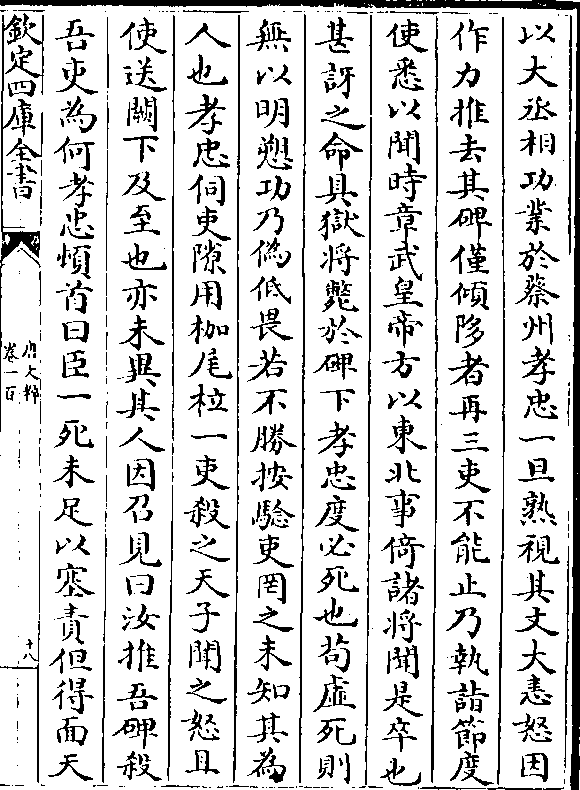 以大丞相功業於蔡州孝忠一旦熟視其文大恚怒因
作力推去其碑僅傾陊者再三吏不能止乃執詣節度
使悉以聞時章武皇帝方以東北事倚諸將聞是卒也
甚訝之命具獄將斃於碑下孝忠度必死也苟虛死則
無以明愬功乃偽低畏若不勝按驗吏罔之未知其為
人也孝忠伺吏隙用枷尾拉一吏殺之天子聞之怒且
使送闕下及至也亦未異其人因召見曰汝推吾碑殺
吾吏為何孝忠頓首曰臣一死未足以塞責但得面天
欽定四庫全書
唐文粹
卷一百
十八